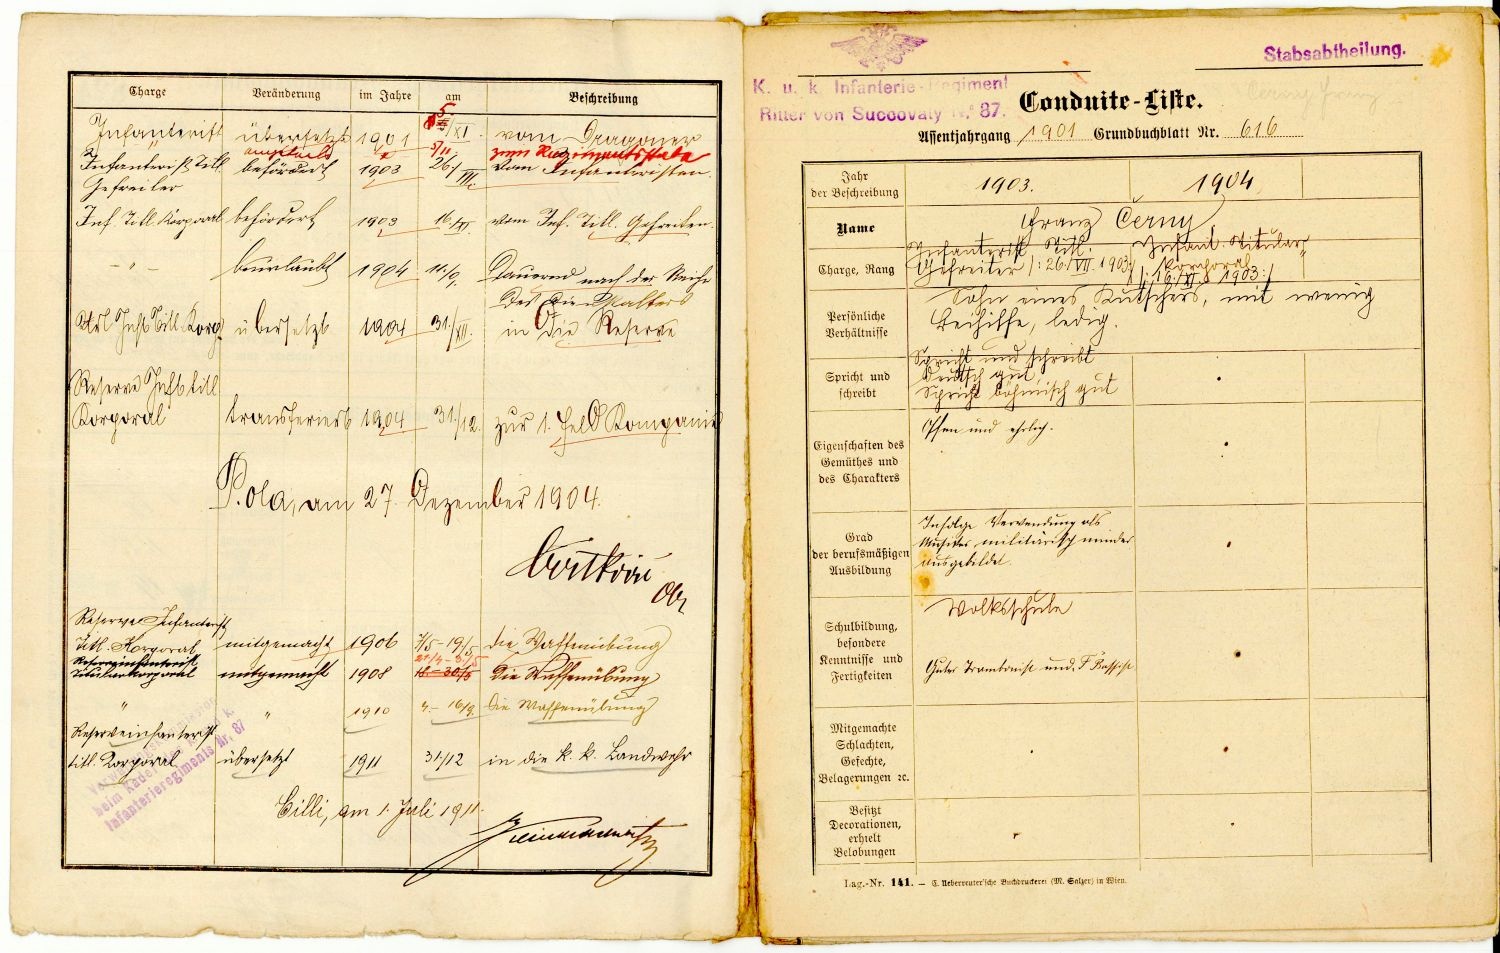 Charge Veränderung im Jahre am Beschreibung
Infanterist übersetzt 1901 5/XI. vom Dragoner
zum Regimentsstabe
Infanterist Titl. befördert 1903 26./VII. vom Infanteristen.
Gefreiter
Inf. Titl. Korporal befördert 1903 16./XI. vom Inf. Titl. Gefreiten.
– " – beurlaubt 1904 11./9. Dauernd nach der Reihe
des
Url. Inft. Titl. Korp. übersetzt 1904 31./XII. in die Reserve
Reserve Inft. titl.
Korporal transferiert 1904 31/12. zur 1. Feld Kompanie
Pola, am 27. Dezember 1904.
Obst
Reserve Infanterist
Titl. Korporal mitgemacht 1906 7/5–19/5 die Waffenübung
Reserveinfanterist
Titularkorporal mitgemacht 1908 18.–30/5 die Waffenübung
" " 1910 4.–16/9. die Waffenübung
Reserveinfanterist
titl. Korporal übersetzt 1911 31/12 in die k. k. Landwehr
beim Kader
Infanterieregiments Nr. 87
Cilli, am 1. Juli 1911.
Stabsabtheilung.
K. u. k. Infanterie-Regiment
Ritter von Succovaty Nº 87.
Conduite-Liste.
Assentjahrgang 1901 Grundbuchblatt Nr. 616
Jahr
der Beschreibung 1903. 1904
Name Franz Černy
Charge, Rang Infanterist Titl. Infant. Titular
Gefreiter /: 26./VII. 1903 :/ Korporal
/: 16./XI. 1903 :/
Persönliche
Verhältnisse Sohn eines Kutschers, mit wenig
Beihilfe, ledig.
Spricht und
schreibt Spricht und schreibt
Deutsch gut,
Spricht böhmisch gut
Eigenschaften des
Gemüthes und
des Charakters Offen und ehrlich.
Grad
der berufsmäßigen
Ausbildung Infolge Verwendung als
Musiker militärisch minder
ausgebildet.
Schulbildung,
besondere
Kenntnisse und
Fertigkeiten Volksschule
Guter und
Mitgemachte
Schlachten,
Gefechte,
Belagerungen ꝛc.
Besitzt
Decorationen,
erhielt
Belobungen
Lag.-Nr. 141. — C. Ueberreuter'sche Buchdruckerei (M. Salzer) in Wien.